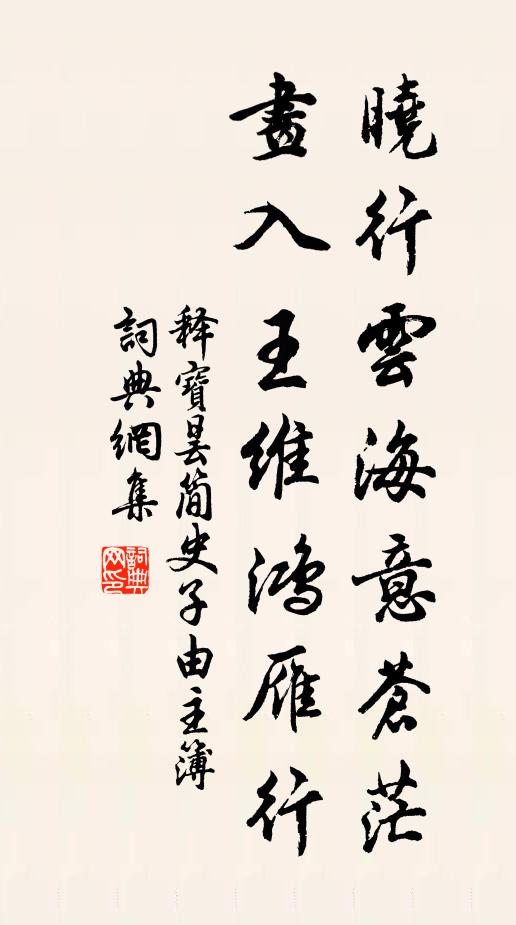 曉行雲海意蒼茫
畫入王維鴻雁行
释寶曇简史子由主簿
詞典網集
詞典网印